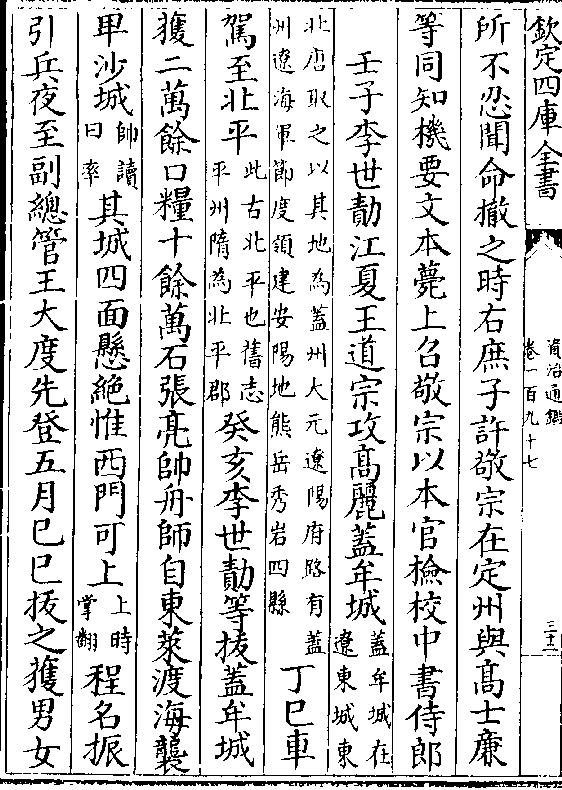 欽定四庫全書
資治通鑑
卷一百九十七
三十二
所不忍聞命撤之時右庶子許敬宗在定州與髙士亷
等同知機要文本薨上召敬宗以本官檢校中書侍郎
壬子李世勣江夏王道宗攻髙麗蓋牟城
蓋牟城在
遼東城東
北唐取之以其地為蓋州大元遼陽府路有蓋
州遼海軍節度領建安湯地熊岳秀岩四縣
丁巳車
駕至北平
此古北平也舊志
平州隋為北平郡
癸亥李世勣等拔蓋牟城
獲二萬餘口糧十餘萬石張亮帥舟師自東萊渡海襲
卑沙城
帥讀
曰率
其城四面懸絶惟西門可上
上時
掌翻
程名振
引兵夜至副總管王大度先登五月己巳拔之獲男女